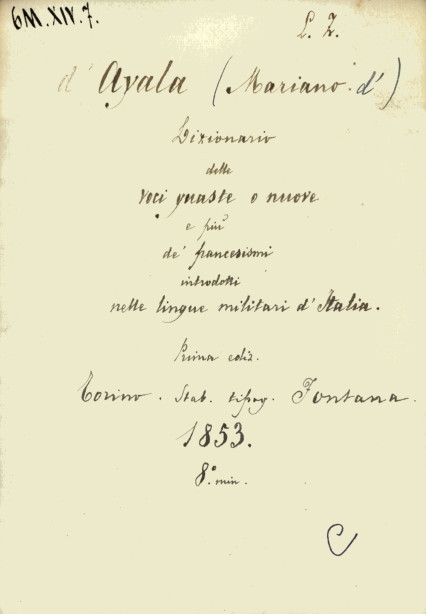 6M.XIV.7.
L. Z.
d' Ayala (Mariano d')
Dizionario
delle
voci guaste o nuove
e più
de' francesismi
introdotti
nelle lingue militari d'Italia.
Prima ediz.
Torino. Stab. tipog. Fontana.
1853.
8.° min.
C